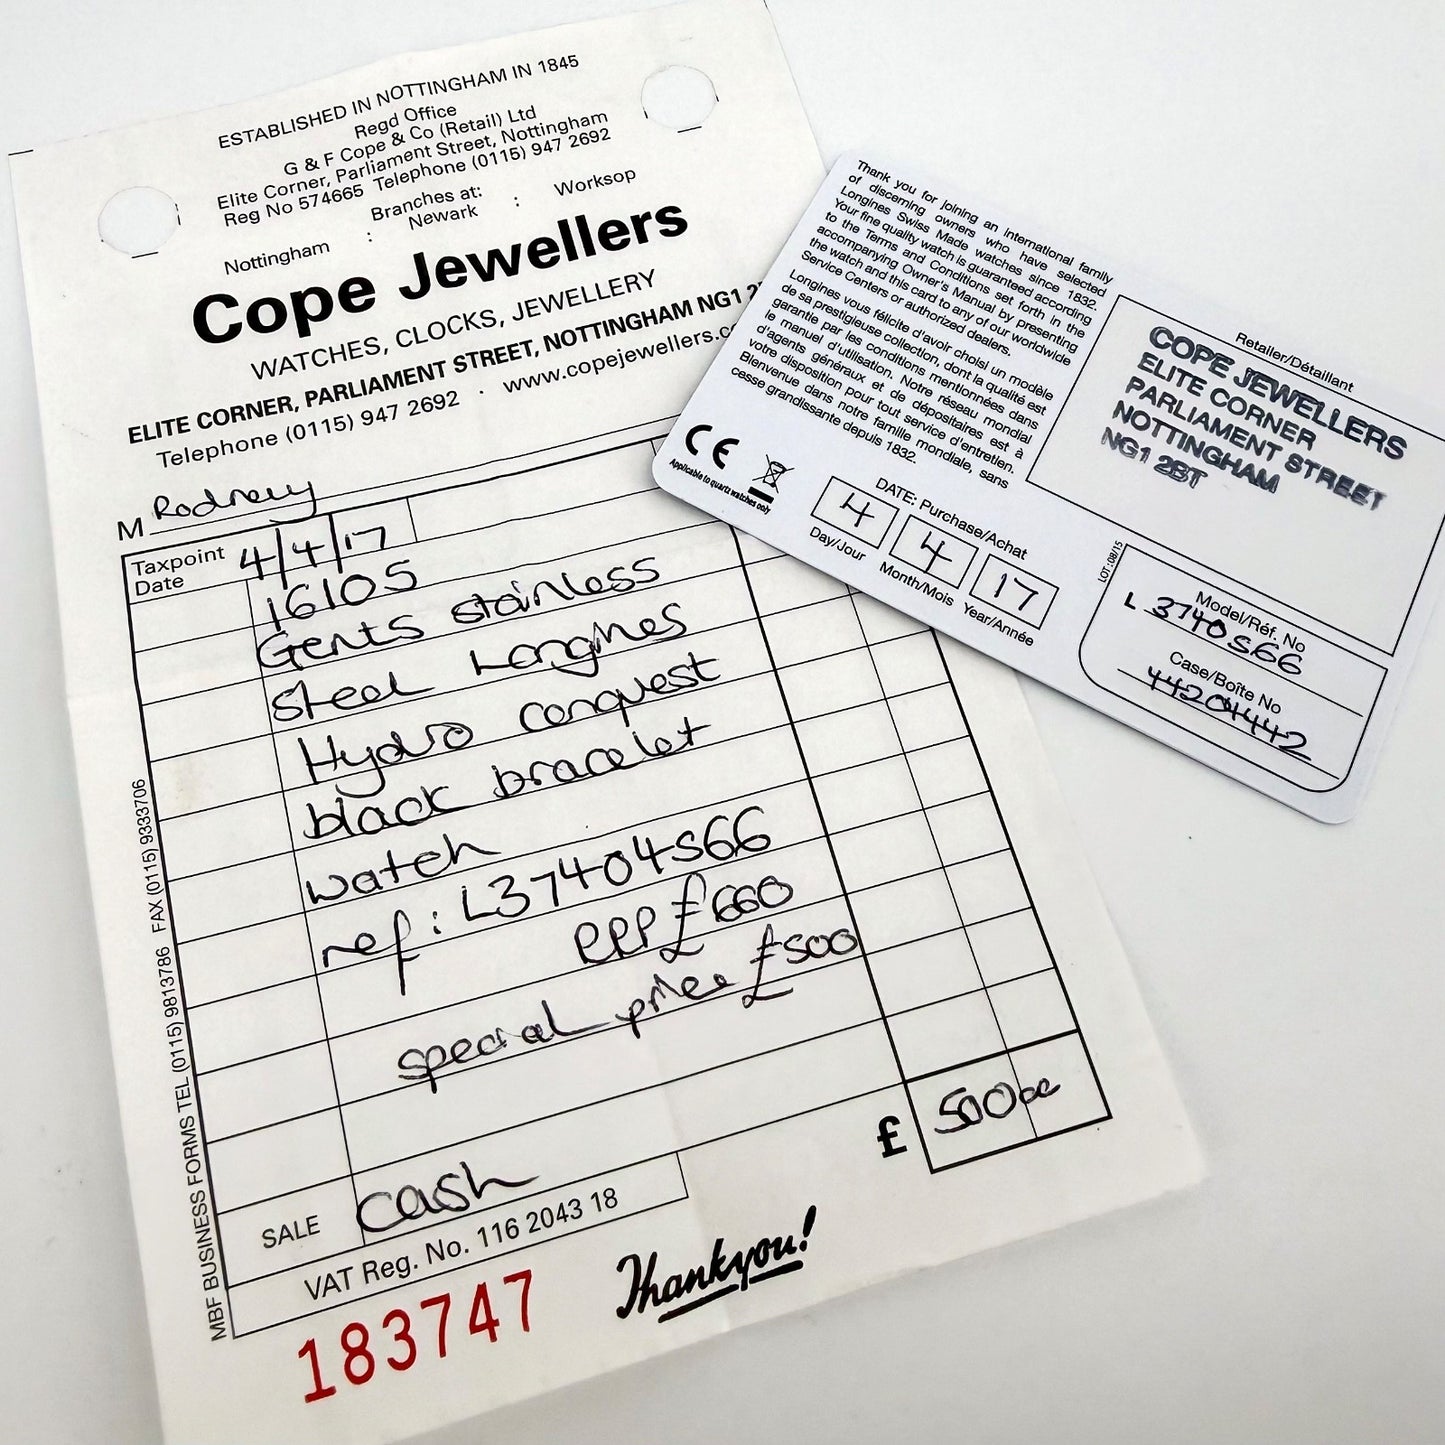 ESTABLISHED IN NOTTINGHAM IN 1845
Regd Office
G & F Cope & Co (Retail) Ltd
Elite Corner, Parliament Street, Nottingham
Reg No 574665 Telephone (0115) 947 2692
Branches at:
Nottingham : Newark : Worksop
Cope Jewellers
WATCHES, CLOCKS, JEWELLERY
ELITE CORNER, PARLIAMENT STREET, NOTTINGHAM NG1
Telephone (0115) 947 2692 · www.copejewellers.
M Rodney
Taxpoint
Date
4/4/17
16105
Gents stainless
steel Longines
Hydro conquest
black bracelet
watch
ref: L37404S66
RRP £660
special price £500
£ 500 00
SALE cash
VAT Reg. No. 116 2043 18
183747
Thankyou!
MBF BUSINESS FORMS TEL (0115) 9813786 FAX (0115) 9333706
Thank you for joining an international family
of discerning owners who have selected
Longines Swiss Made watches since 1832.
Your fine quality watch is guaranteed according
to the Terms and Conditions set forth in the
accompanying Owner's Manual by presenting
the watch and this card to any of our worldwide
Service Centers or authorized dealers.
Longines vous félicite d'avoir choisi un modèle
de sa prestigieuse collection, dont la qualité est
garantie par les conditions mentionnées dans
le manuel d'utilisation. Notre réseau mondial
d'agents généraux et de dépositaires est à
votre disposition pour tout service d'entretien.
Bienvenue dans notre famille mondiale, sans
cesse grandissante depuis 1832.
CE
Applicable to quartz watches only
DATE: Purchase/Achat
4 4 17
Day/Jour Month/Mois Year/Année
Retailer/Détaillant
COPE JEWELLERS
ELITE CORNER
PARLIAMENT STREET
NOTTINGHAM
NG1 2BT
LOT: 08/15
Model/Réf. No
L 3740S66
Case/Boîte No
44204442